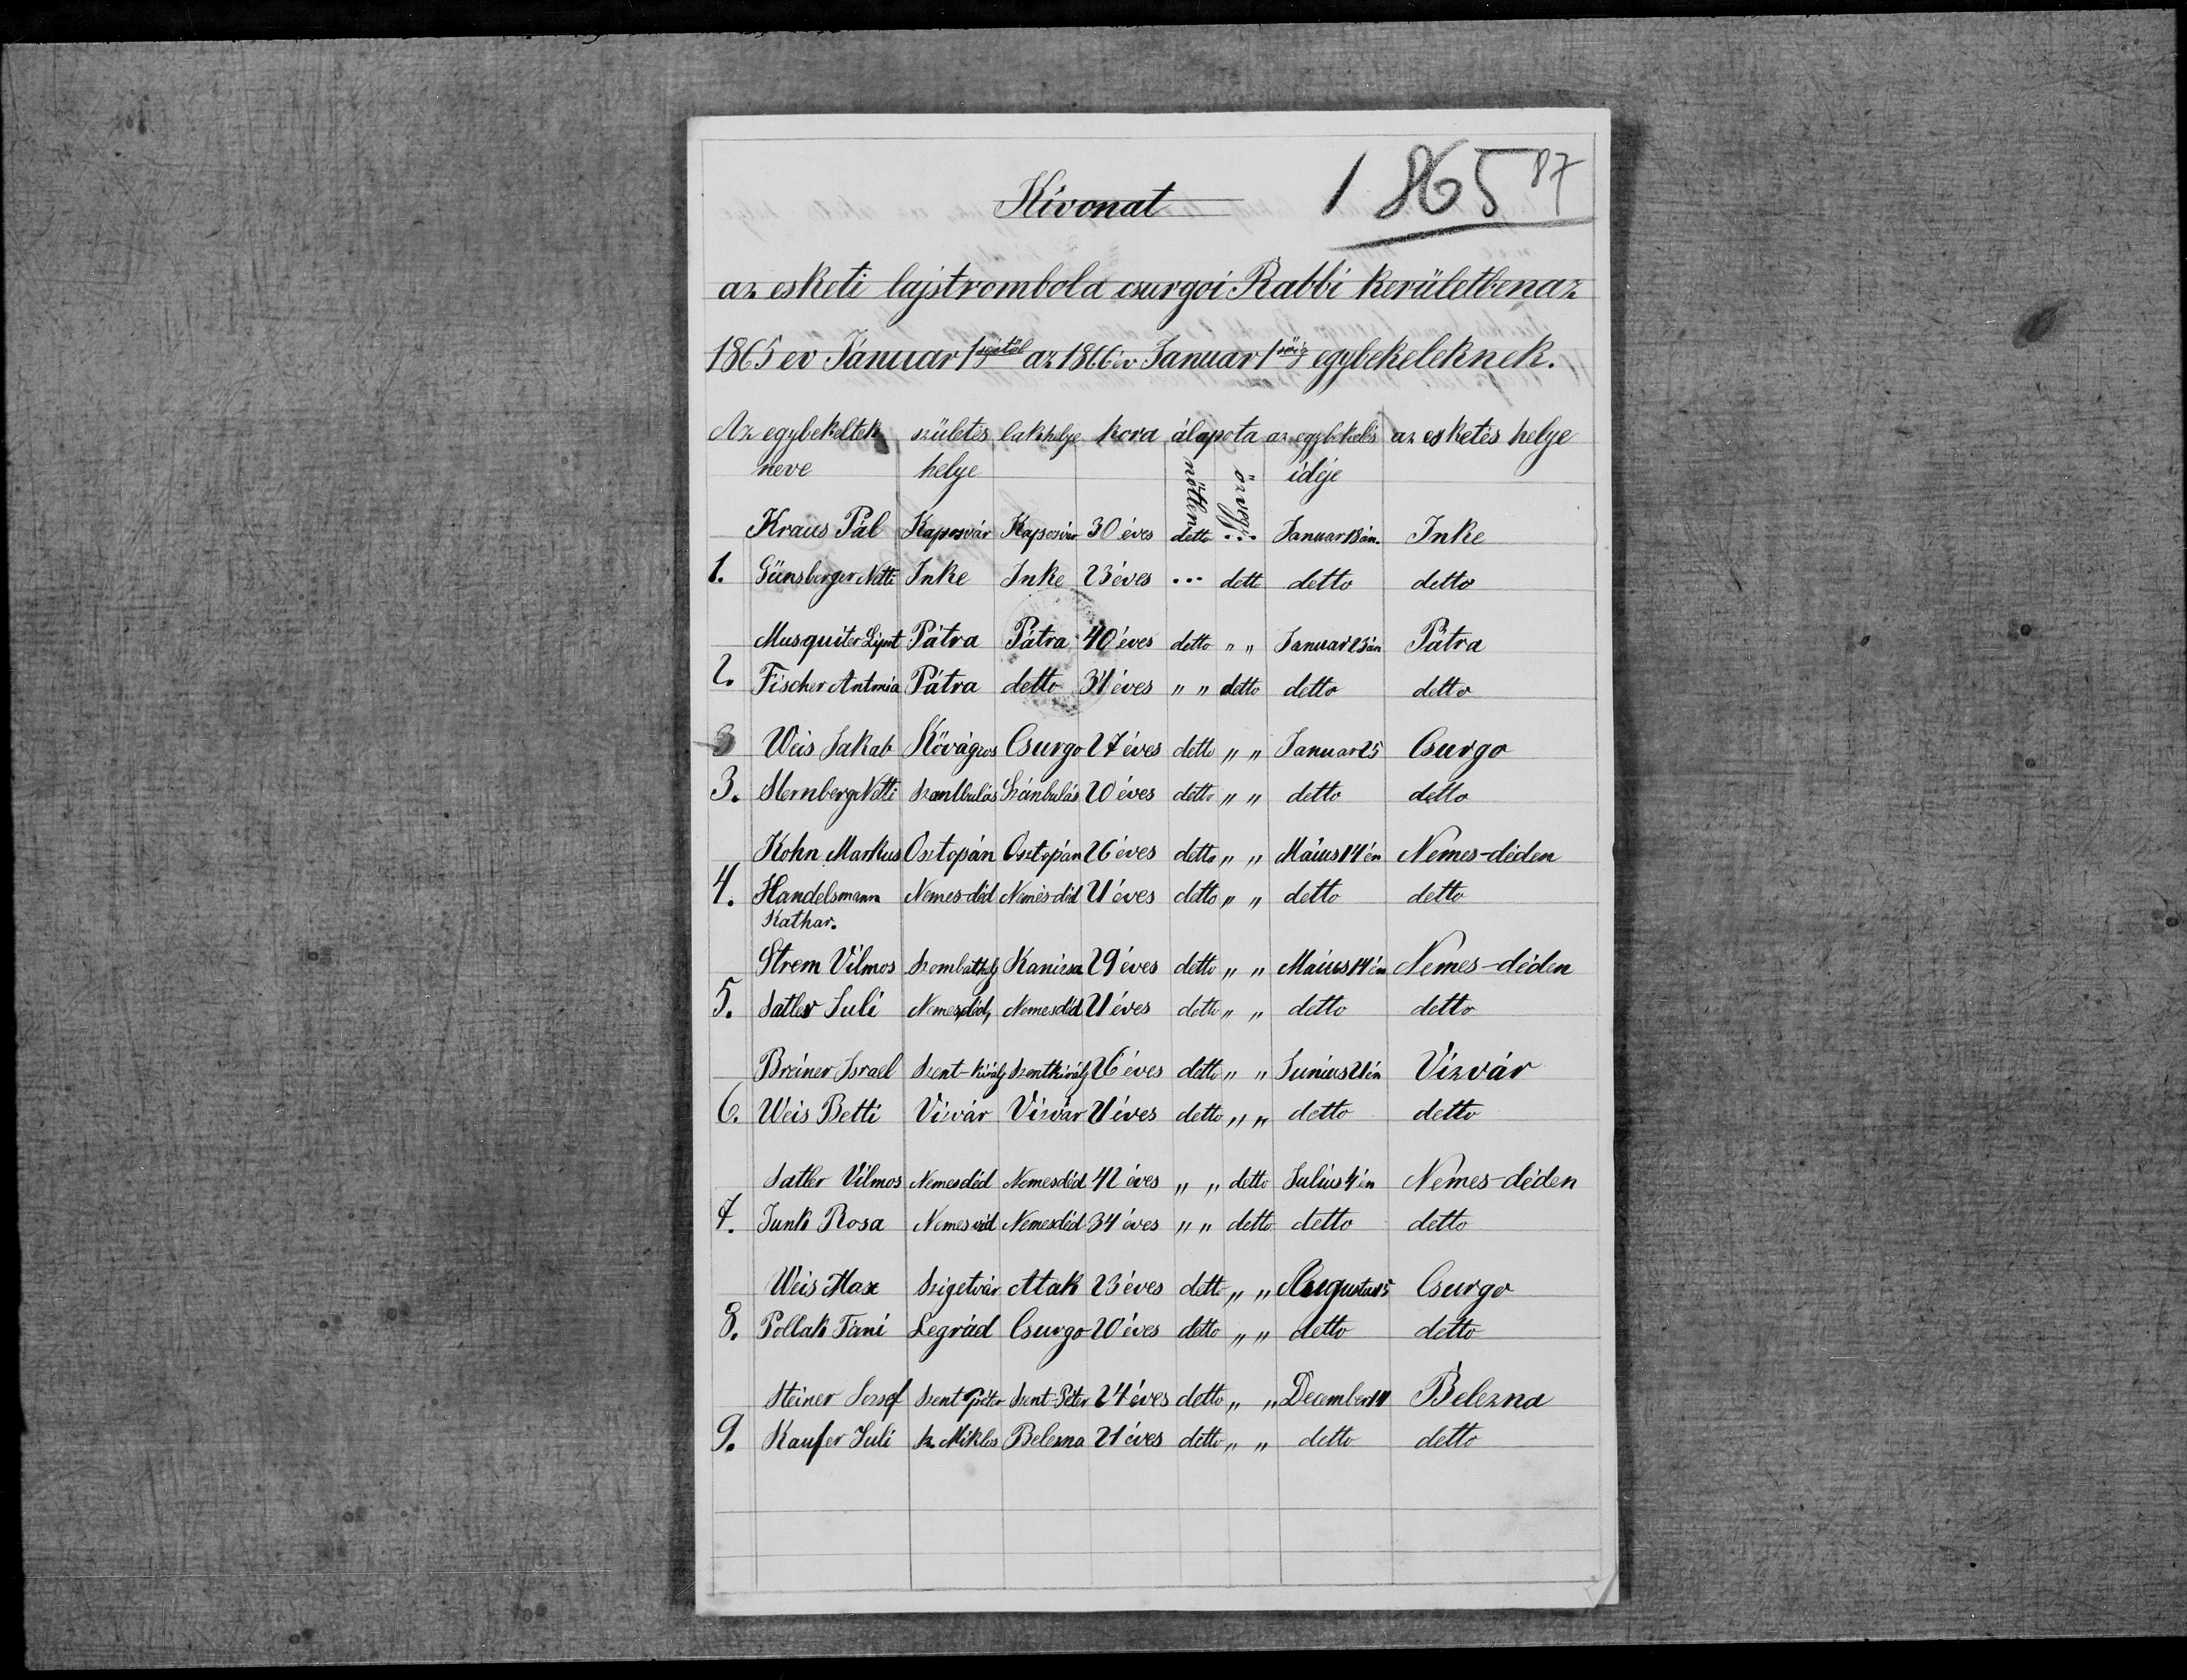 1865 87
Kivonat
az esketi lajstrombola csurgoi Rabbi kerületbenaz
1865 ev Jánuar 1 sejétöl az 1866 év Januar 1 söig egybekeleknek.
Az egybekeltek születés lakhelye kora álapota az egybekelés az esketés helye
neve helye nötlen özvegy ideje
Kraus Pál Kaposvár Kaposvár 30 éves detto ... Januar 18án. Inke
1. Günsberger Netti Inke Inke 23 éves ... detto detto detto
Musquiter Lipot Pátra Pátra 40 éves detto " " Januar 23án Pátra
2. Fischer Antonia Pátra detto 31 éves " " detto detto detto
3 Weis Jakab Kövágo Csurgo 27 éves detto " " Januar 25 Csurgo
3. Sternberg Netti Szantbulás Szánbulás 20 éves detto " " detto detto
Kohn Markus Osztopán Osztopán 26 éves detto " " Máius 14én Nemes-déden
4. Handelsmann Nemes-déd Nemes-déd 21 éves detto " " detto detto
Kathar.
Strem Vilmos Szombathely Kanizsa 29 éves detto " " Maius 14én Nemes-déden
5. Satler Juli Nemesdéd, Nemesdéd 21 éves detto " " detto detto
Breiner Israel Szent-király Szentkirály 26 éves detto " " Junius 21én Vizvár
6. Weis Betti Vizvár Vizvár 21 éves detto " " detto detto
Satler Vilmos Nemesdéd Nemesdéd 42 éves " " detto Julius 4én Nemes-déden
7. Junk Rosa Nemes vid Nemesdéd 34 éves " " detto detto detto
Weis Max Szigetvár Atak 23 éves detto " " Augustus 15 Csurgo
8. Pollak Fáni Legrád Csurgo 20 éves detto " " detto detto
Steiner Jozsef Szent péter Szent-Péter 24 éves detto " " December Belezna
9. Kaufer Juli Sz. Miklos Belezna 21 éves detto " " detto detto